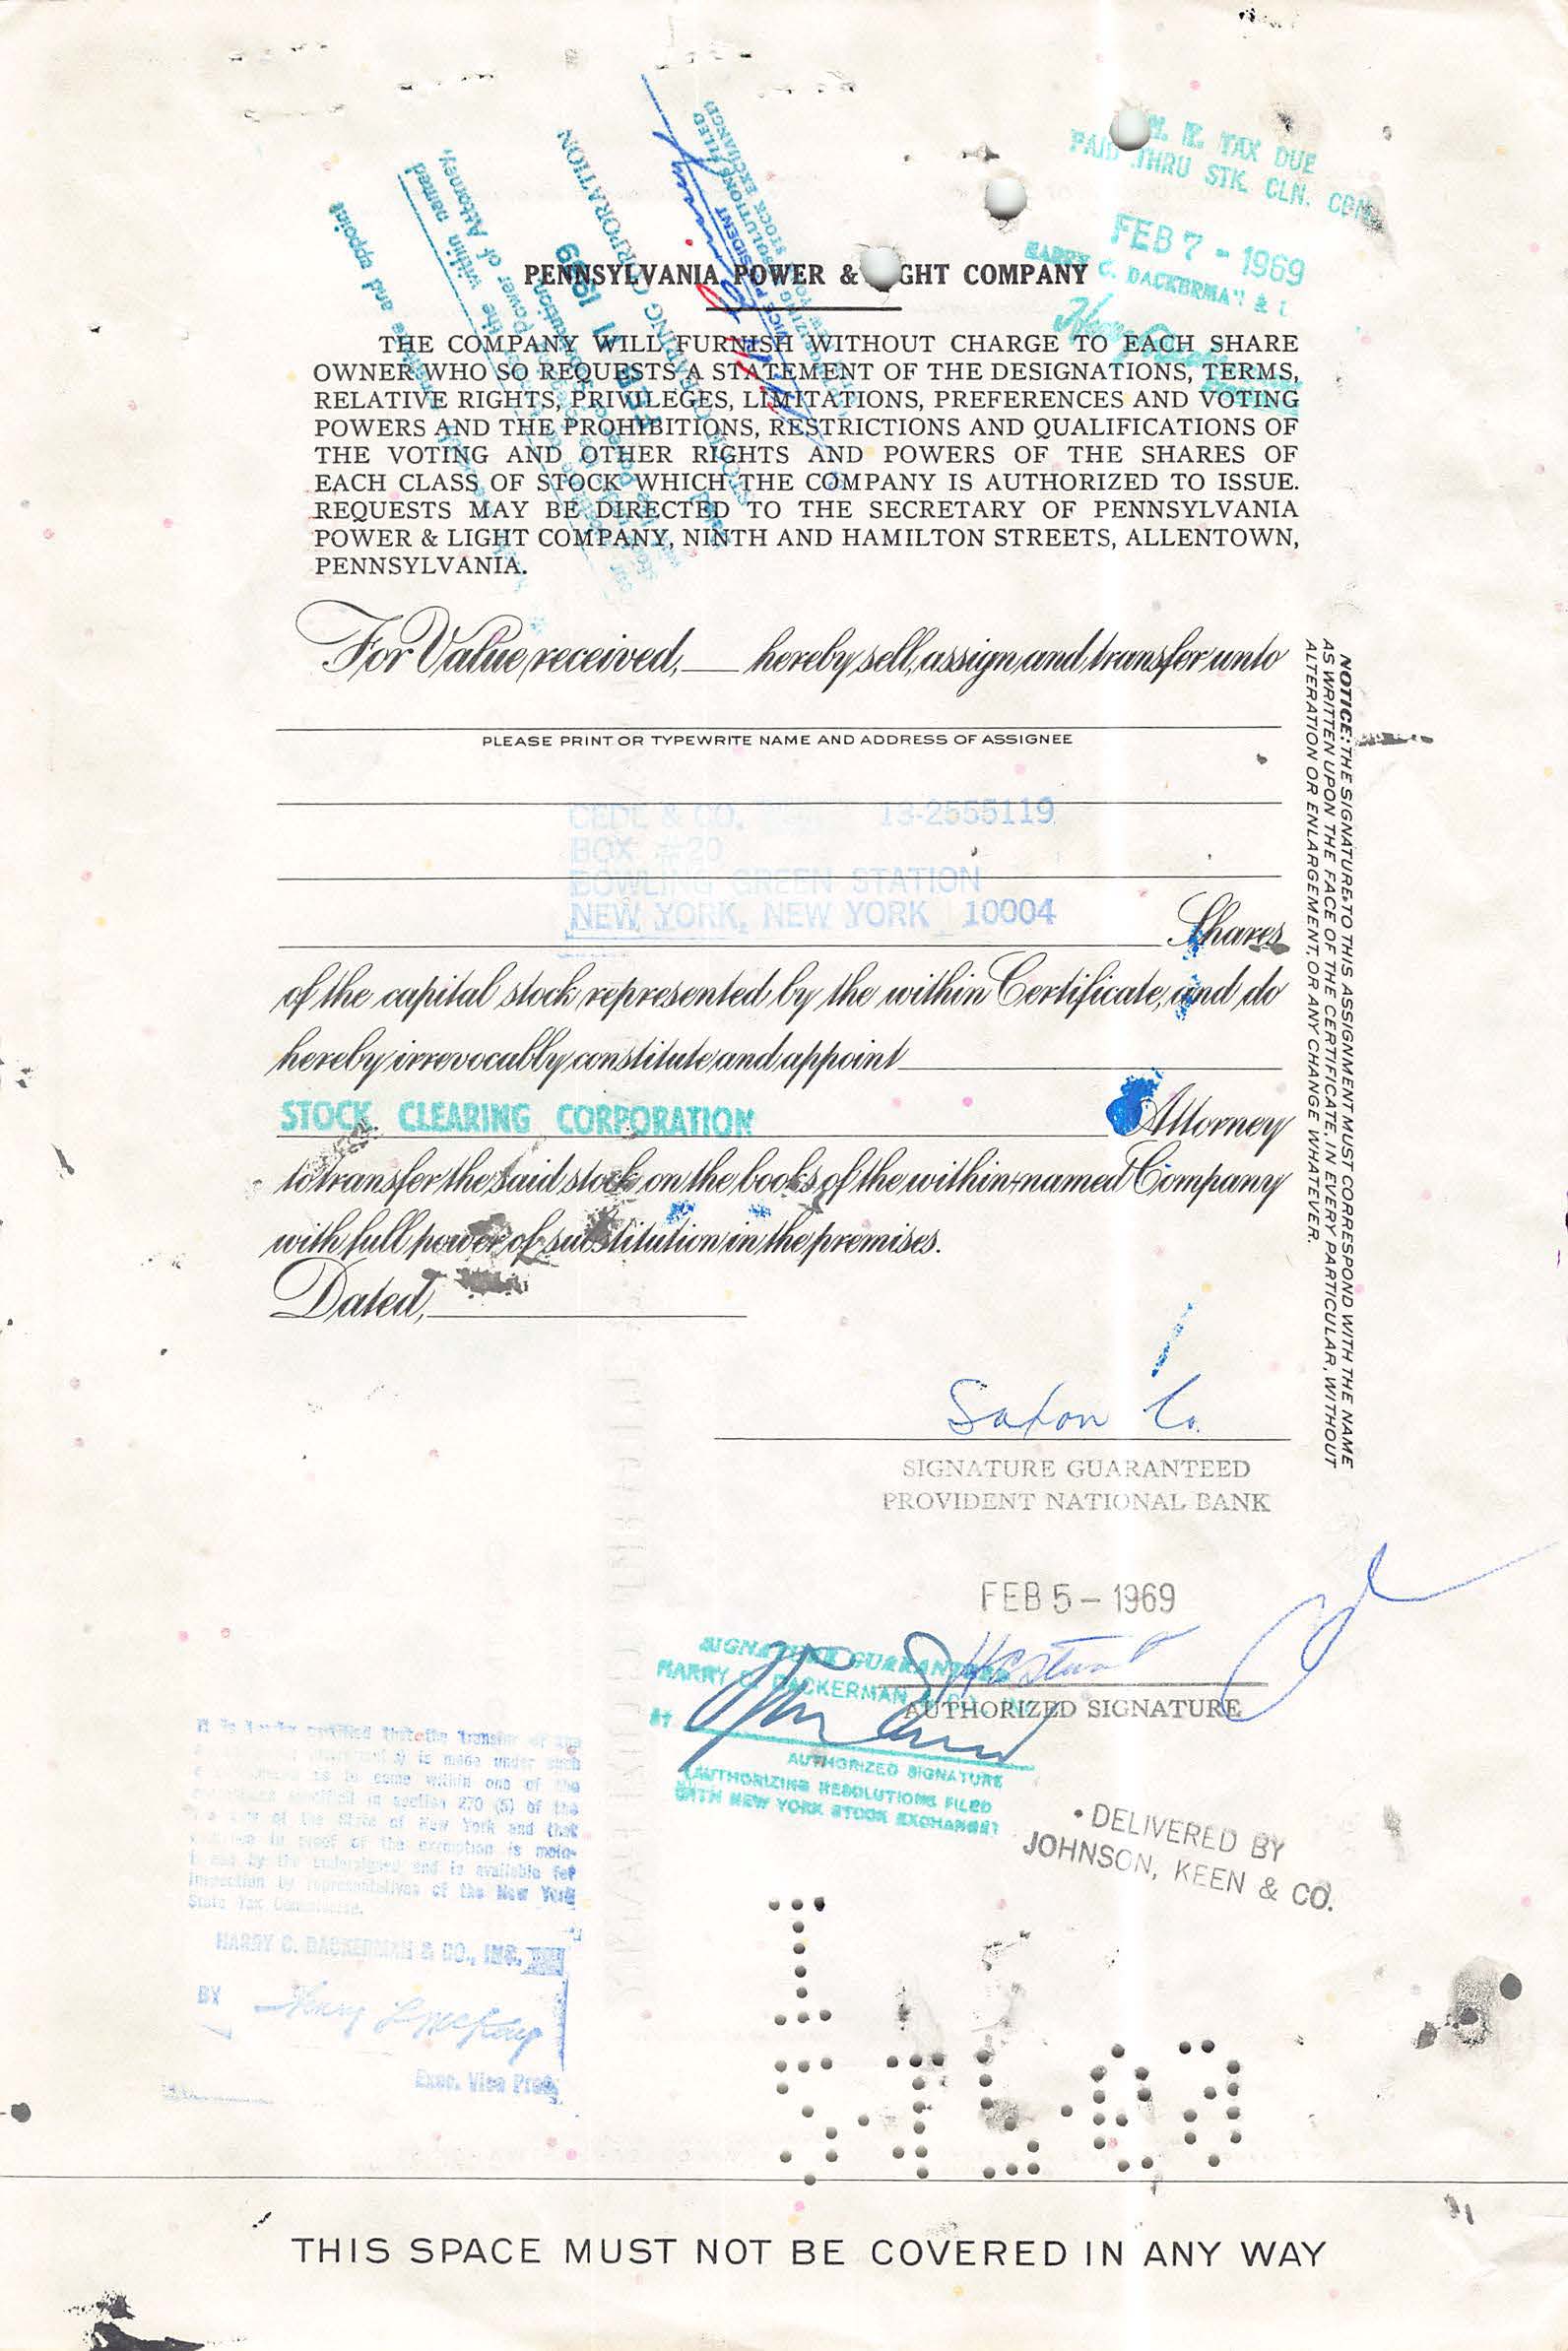 N. Y. TAX DUE
PAID THRU STK. CLN. CORP.
FEB 7 - 1969
HARRY C. DACKERMAN &
and appoint
the within named
Power of Attorney
STOCK CLEARING CORPORATION
VICE PRESIDENT
STOCK EXCHANGE
PENNSYLVANIA POWER & GHT COMPANY
THE COMPANY WILL FURNISH WITHOUT CHARGE TO EACH SHARE
OWNER WHO SO REQUESTS A STATEMENT OF THE DESIGNATIONS, TERMS,
RELATIVE RIGHTS, PRIVILEGES, LIMITATIONS, PREFERENCES AND VOTING
POWERS AND THE PROHIBITIONS, RESTRICTIONS AND QUALIFICATIONS OF
THE VOTING AND OTHER RIGHTS AND POWERS OF THE SHARES OF
EACH CLASS OF STOCK WHICH THE COMPANY IS AUTHORIZED TO ISSUE.
REQUESTS MAY BE DIRECTED TO THE SECRETARY OF PENNSYLVANIA
POWER & LIGHT COMPANY, NINTH AND HAMILTON STREETS, ALLENTOWN,
PENNSYLVANIA.
For Value received, hereby sell, assign and transfer unto
PLEASE PRINT OR TYPEWRITE NAME AND ADDRESS OF ASSIGNEE
CEDE & CO. 13-2555119
BOX #20
BOWLING GREEN STATION
NEW YORK, NEW YORK 10004
Shares
of the capital stock represented by the within Certificate, and do
hereby irrevocably constitute and appoint
STOCK CLEARING CORPORATION
Attorney
to transfer the said stock on the books of the within-named Company
with full power of substitution in the premises.
Dated,
NOTICE: THE SIGNATURE TO THIS ASSIGNMENT MUST CORRESPOND WITH THE NAME
AS WRITTEN UPON THE FACE OF THE CERTIFICATE, IN EVERY PARTICULAR, WITHOUT
ALTERATION OR ENLARGEMENT, OR ANY CHANGE WHATEVER.
Saxon Co.
SIGNATURE GUARANTEED
PROVIDENT NATIONAL BANK
FEB 5 - 1969
AUTHORIZED SIGNATURE
SIGNATURE GUARANTEED
HARRY C. DACKERMAN & CO., INC.
BY
AUTHORIZED SIGNATURE
(AUTHORIZING RESOLUTIONS FILED
WITH NEW YORK STOCK EXCHANGE)
• DELIVERED BY
JOHNSON, KEEN & CO.
It is hereby certified that the transfer of the
is made under such
as to come within one of the
specified in section 270 (5) of the
of the State of New York and that
proof of the exemption is main-
by the undersigned and is available for
inspection by representatives of the New York
State Tax Commission.
HARRY C. DACKERMAN & CO., INC.
BY
Exec. Vice Pres.
THIS SPACE MUST NOT BE COVERED IN ANY WAY